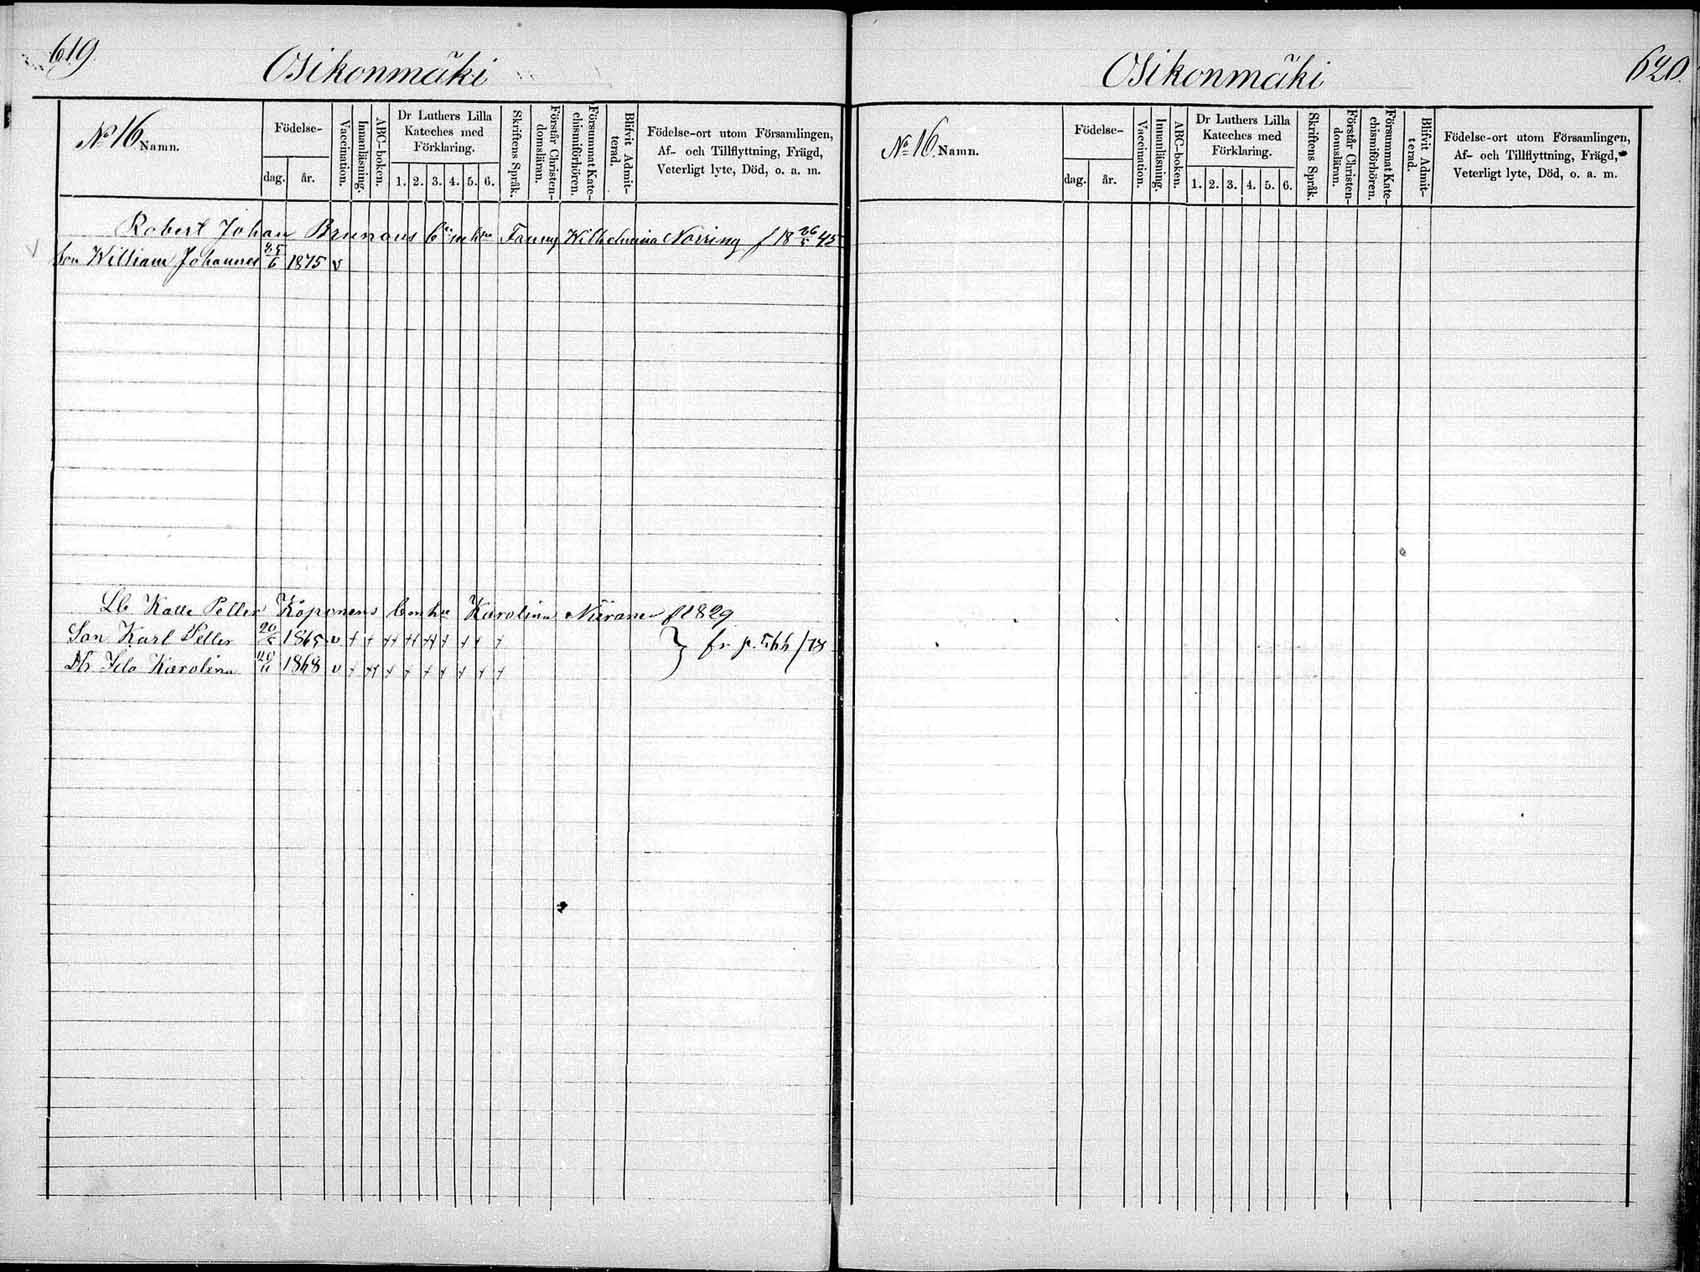 619
Osikonmäki
No 16 Namn.
Födelse-
dag.
år.
Vaccination.
Innanläsning.
ABC-boken.
Dr Luthers Lilla
Kateches med
Förklaring.
1. 2. 3. 4. 5. 6.
Skriftens Språk.
Förstår Christen-
domsläran.
Försummat Kate-
chismiförhören.
Blifvit Admit-
terad.
Födelse-ort utom Församlingen,
Af- och Tillflyttning, Frägd,
Veterligt lyte, Död, o. a. m.
Robert Johan Fanny Wilhelmina Norring f 18 26/5 45
Son William Johannes 25/6 1875 v
Kalle Petter Köponens Karolina f 1829
Son Karl Petter 20/5 1865 v + +
Dr Ida Karolina 1868 v
fr p. 566/78
Osikonmäki
620.
No 16. Namn.
Födelse-
dag.
år.
Vaccination.
Innanläsning.
ABC-boken.
Dr Luthers Lilla
Kateches med
Förklaring.
1. 2. 3. 4. 5. 6.
Skriftens Språk.
Förstår Christen-
domsläran.
Försummat Kate-
chismiförhören.
Blifvit Admit-
terad.
Födelse-ort utom Församlingen,
Af- och Tillflyttning, Frägd,
Veterligt lyte, Död, o. a. m.